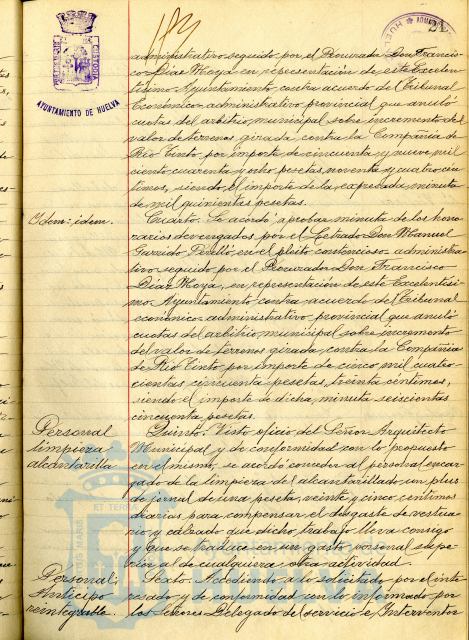 AYUNTAMIENTO DE HUELVA
administrativo seguido por el Procurador Don Francis-
co Diaz Moya en representación de este Excelen-
tísimo Ayuntamiento contra acuerdo del Tribunal
Económico-administrativo provincial que anuló
cuotas del arbitrio municipal sobre incremento del
valor de terrenos girada contra la Compañia de
Rio Tinto por importe de cincuenta y nueve mil
ciento cuarenta y ocho pesetas noventa y cuatro cén-
timos, siendo el importe de la expresada minuta
de mil quinientas pesetas.
Idem: idem.
Cuarto. Se acordó aprobar minuta de los hono-
rarios devengados por el Letrado Don Manuel
Garrido Perelló, en el pleito contencioso-administra-
tivo seguido por el Procurador Don Francisco
Diaz Moya, en representación de este Excelentísi-
mo Ayuntamiento contra acuerdo del Tribunal
económico-administrativo provincial que anuló
cuotas del arbitrio municipal sobre incremento
del valor de terrenos girada, contra la Compañia
de Rio Tinto, por importe de cinco mil cuatro-
cientas cincuenta pesetas, treinta céntimos,
siendo el importe de dicha minuta seiscientas
cincuenta pesetas.
Personal
limpieza
alcantarilla
Quinto. Visto oficio del Señor Arquitecto
Municipal y de conformidad con lo propuesto
en el mismo, se acordó conceder al personal encar-
gado de la limpieza del alcantarillado un plus
de jornal de una peseta, veinte y cinco céntimos
diarias para compensar el desgaste de vestua-
rio y calzado que dicho trabajo lleva consigo
y que se traduce en un gasto personal supe-
rior al de cualquiera otra actividad.
Personal,
Anticipo
reintegrable.
Sexto. Accediendo a lo solicitado por el inte-
resado y de conformidad con lo informado por
los Señores Delegado del Servicio e Interventor
ET TERRA